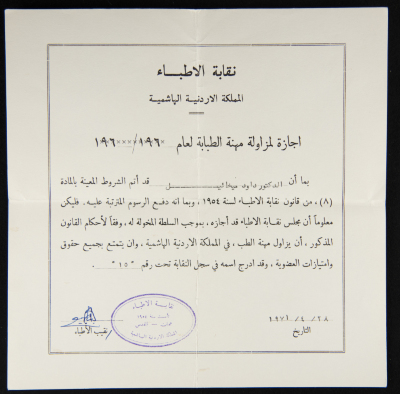 نقابة الاطباء
المملكة الاردنية الهاشمية
اجازة لمزاولة مهنة الطبابة لعام ١٩٦٠/××××١٩٦
بما أن الدكتور داود ميخائيل قد أتم الشروط المعينة بالمادة
(٨) ، من قانون نقابة الاطباء لسنة ١٩٥٤ ، وبما انه دفع الرسوم المترتبة عليه . فليكن
معلوماً أن مجلس نقابة الاطباء قد أجازه ، بموجب السلطة المخولة له ، وفقاً لأحكام القانون
المذكور ، أن يزاول مهنة الطب ، في المملكة الاردنية الهاشمية ، وان يتمتع بجميع حقوق
وامتيازات العضوية ، وقد ادرج اسمه في سجل النقابة تحت رقم " ١٥ " .
نقابة الاطباء
١٩٧١/٤/٢٨
التاريخ
نقيب الأطباء